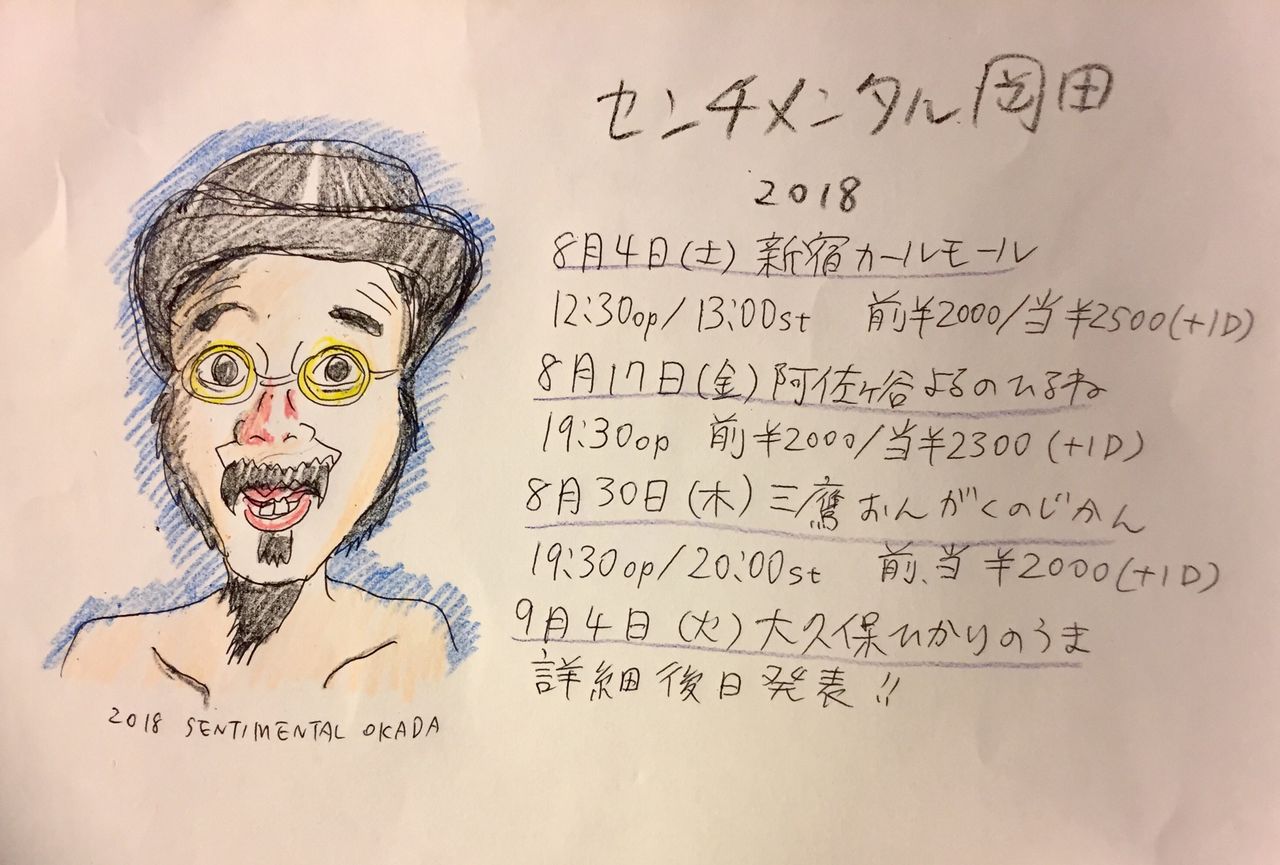 センチメンタル岡田
2018
8月4日(土)新宿カールモール
12:30op/13:00st 前¥2000/当¥2500(+1D)
8月17日(金)阿佐ヶ谷よるのひるね
19:30op 前¥2000/当¥2300(+1D)
8月30日(木)三鷹おんがくのじかん
19:30op/20:00st 前、当¥2000(+1D)
9月4日(火)大久保ひかりのうま
詳細後日発表!!
2018 SENTIMENTAL OKADA